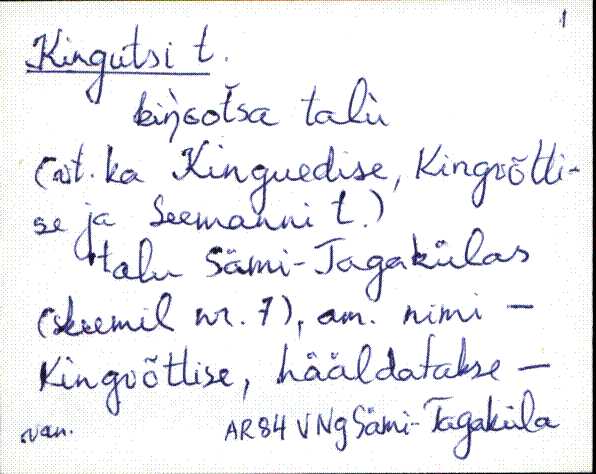 1
Kingutsi t.
kiŋ̀ootsa talu
(vt. ka Kinguedise, Kingvõtli-
se ja Seemanni t.)
talu Sämi-Tagakülas
(skeemil nr. 7), am. nimi –
Kingvõtlise, hääldatakse –
van. AR84 VNg Sämi-Tagaküla